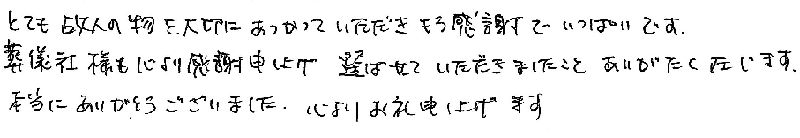 とても故人の物を大切にあつかっていただきもう感謝でいっぱいです.
葬儀社様も心より感謝申し上げ 選ばせていただきましたこと ありがたく存じます.
本当にありがとうございました. 心よりお礼申し上げます